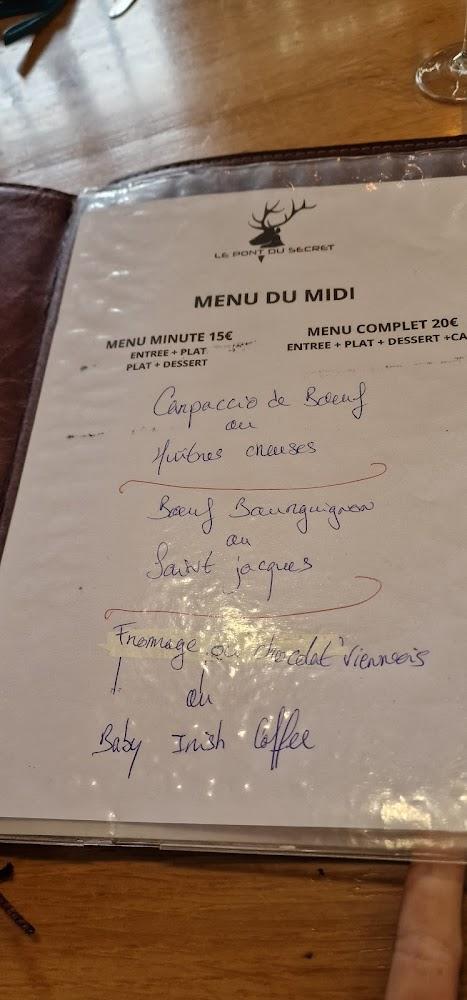 LE PONT DU SECRET
MENU DU MIDI
MENU MINUTE 15€
ENTREE + PLAT
PLAT + DESSERT
MENU COMPLET 20€
ENTREE + PLAT + DESSERT +CA
Carpaccio de Bœuf
ou
Huîtres creuses
Bœuf Bourguignon
ou
Saint jacques
Fromage ou chocolat viennois
ou
Baby Irish Coffee